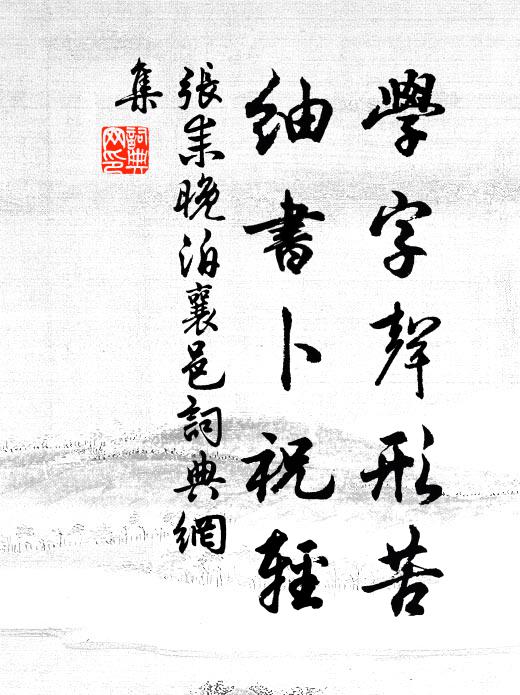 學字聲形苦
紬書卜祝輕
張耒晚泊襄邑詞典網
集
詞典
网印